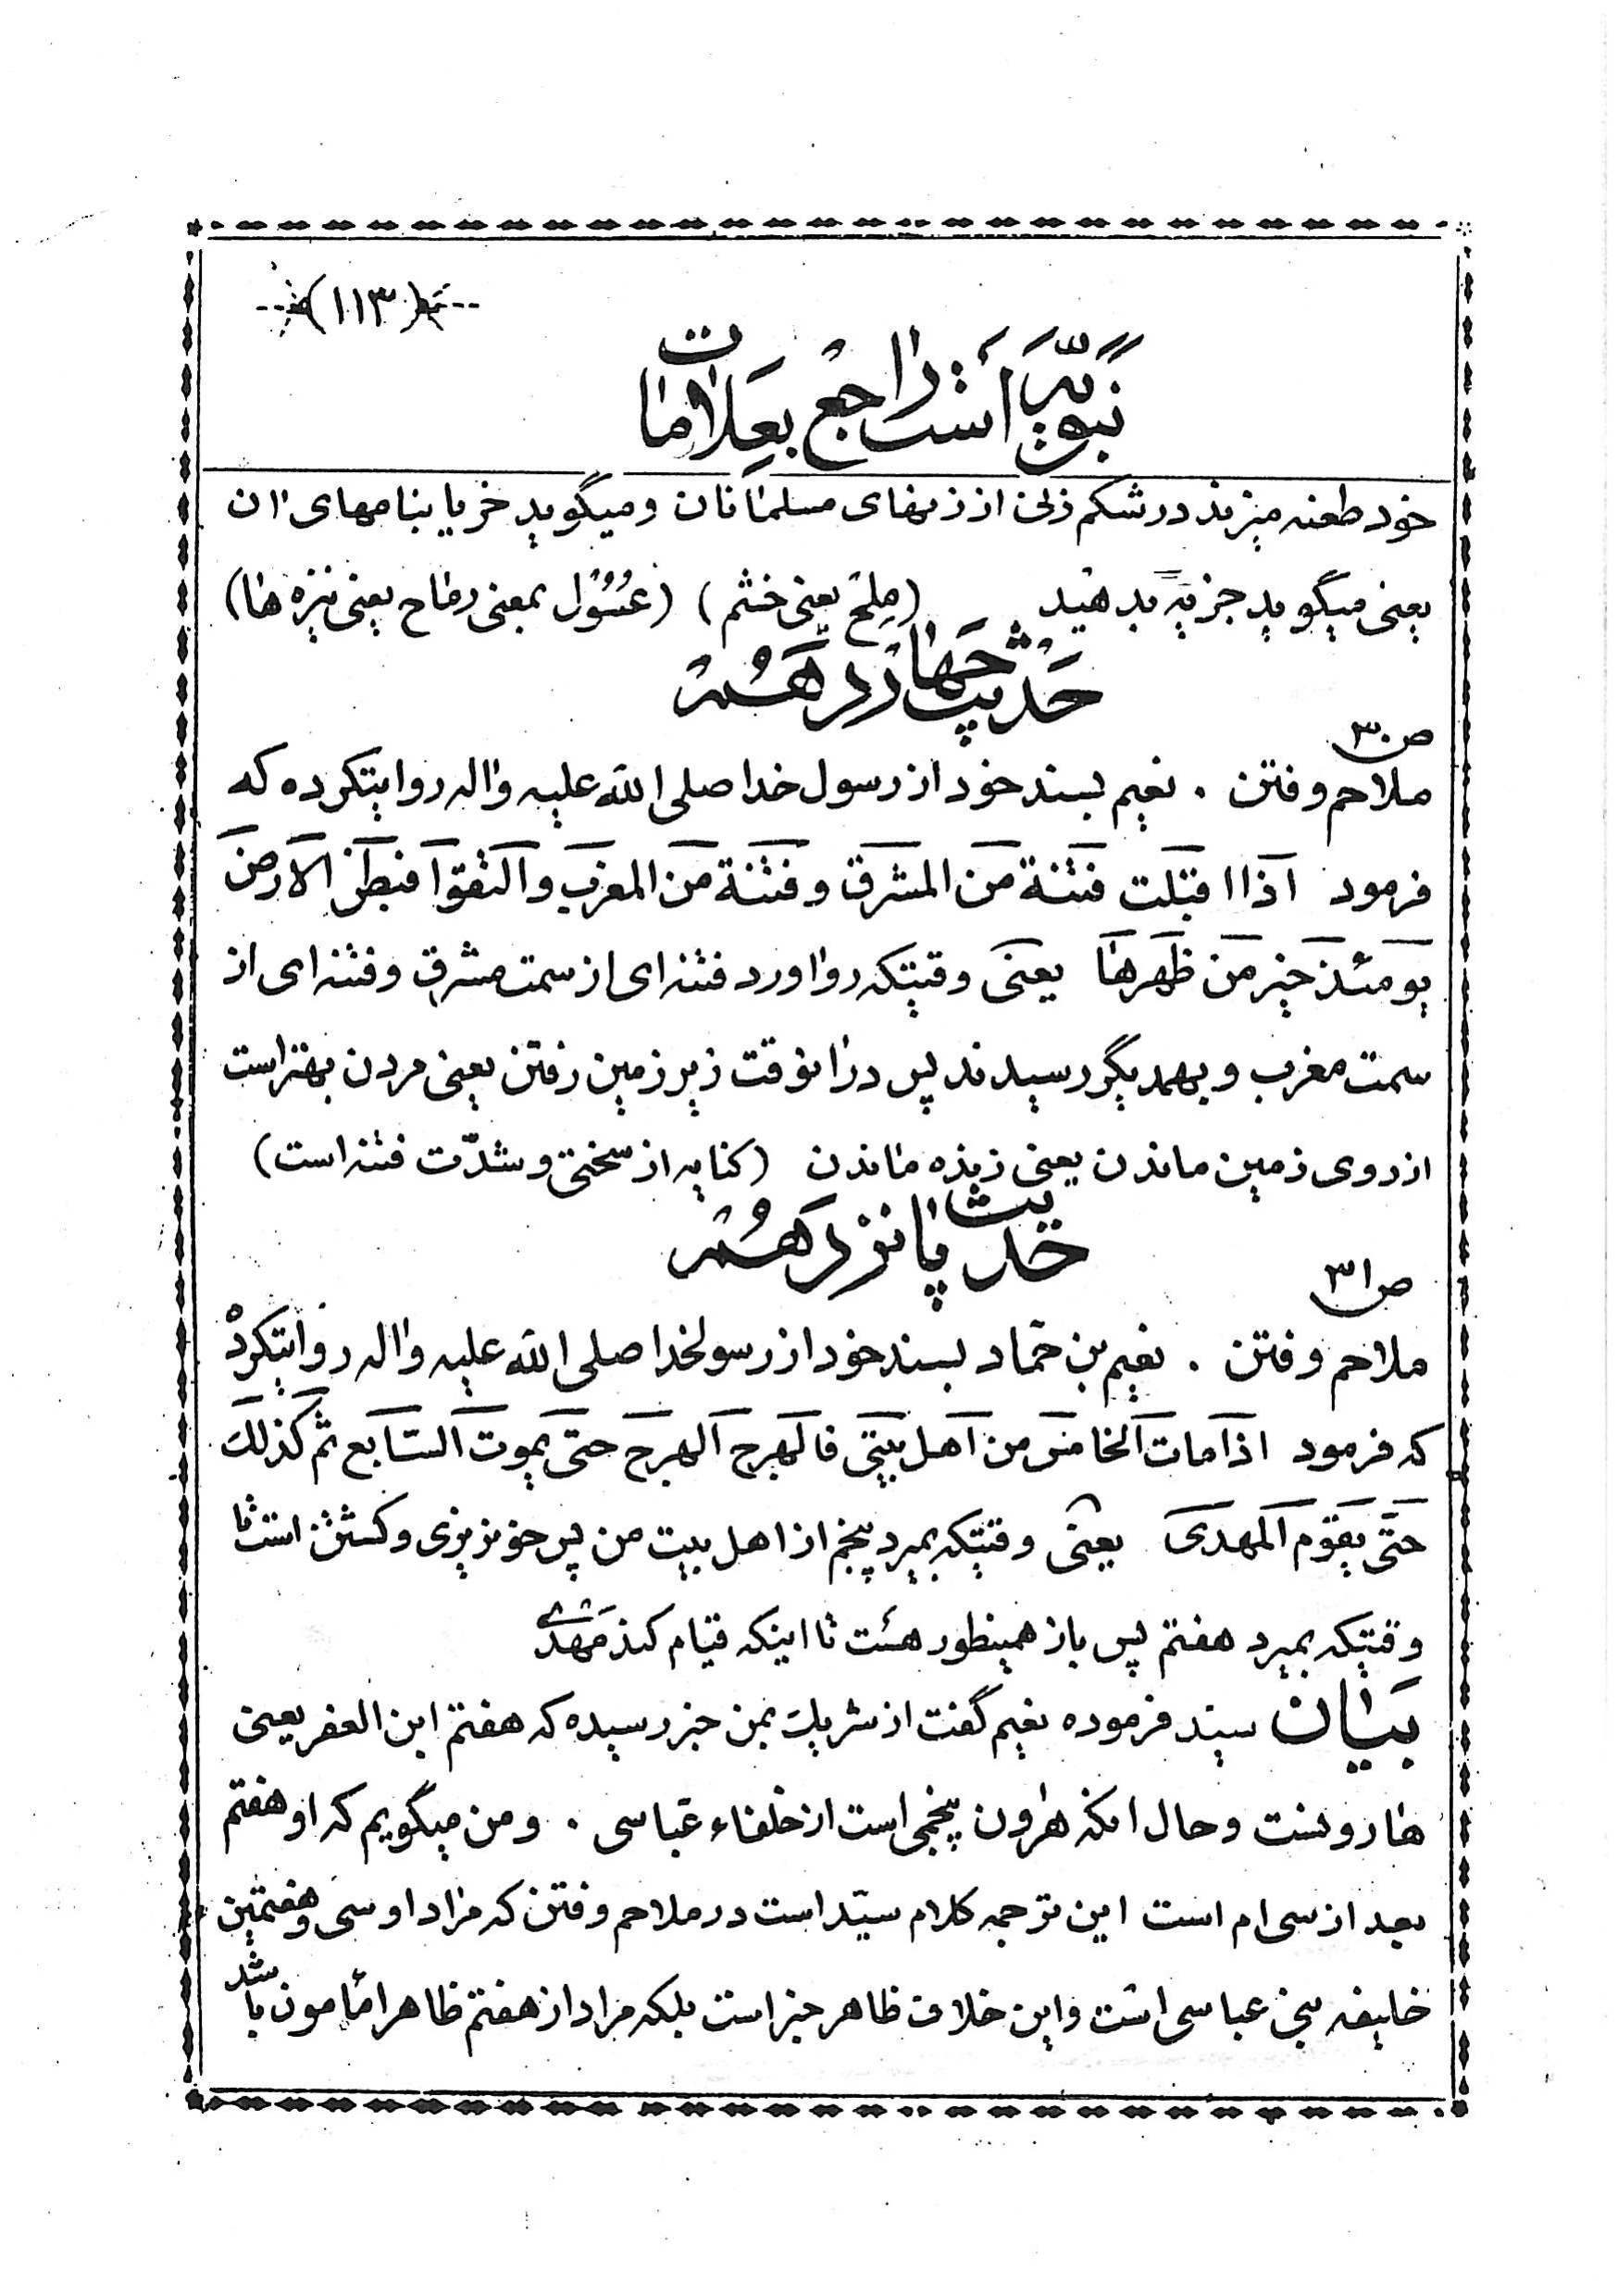 (۱۱۳)
نبویّه است راجع بعلامات
خود طعنه میزند در شکم زنی از زنهای مسلمانان و میگوید خریا بنامهای اان
یعنی میگوید جزیه بدهید (مِلح یعنی خشم) (عُسُول بمعنی رماح یعنی نیزه ها)
حدیث چهاردهم
ص۳۰
ملاحم و فتن . نعیم بسند خود از رسول خدا صلی الله علیه واله روایتکرده که
فرمود اذا اقبلت فتنة من المشرق و فتنة من المغرب و التقوا فبطن الارض
یومئذ خیر من ظهرها یعنی وقتیکه رو اورد فتنه ای از سمت مشرق و فتنه ای از
سمت مغرب و بهمدیگر رسیدند پس در انوقت زیر زمین رفتن یعنی مردن بهتر است
از روی زمین ماندن یعنی زنده ماندن (کنایه از سختی و شدّت فتنه است)
حدیث پانزدهم
ص۳۱
ملاحم و فتن . نعیم بن حمّاد بسند خود از رسولخدا صلی الله علیه واله روایتکرده
که فرمود اذا مات الخامس من اهل بیتی فالهرج الهرج حتی یموت السّابع ثم کذلك
حتَّی یقوم المهدی یعنی وقتیکه بمیرد پنجم از اهل بیت من پس خونریزی و کشتن است تا
وقتیکه بمیرد هفتم پس باز همینطور هست تا اینکه قیام کند مهدی
بیان سید فرموده نعیم گفت از شریك بمن خبر رسیده که هفتم ابن العفر یعنی
هارونست و حال انکه هرون پنجمی است از خلفاء عبّاسی . و من میگویم که او هفتم
بعد از سی ام است این ترجمه کلام سیّد است در ملاحم و فتن که مراد او سی و هفتمین
خلیفه بنی عباسی است و این خلاف ظاهر خبر است بلکه مراد از هفتم ظاهرا مامون باشد